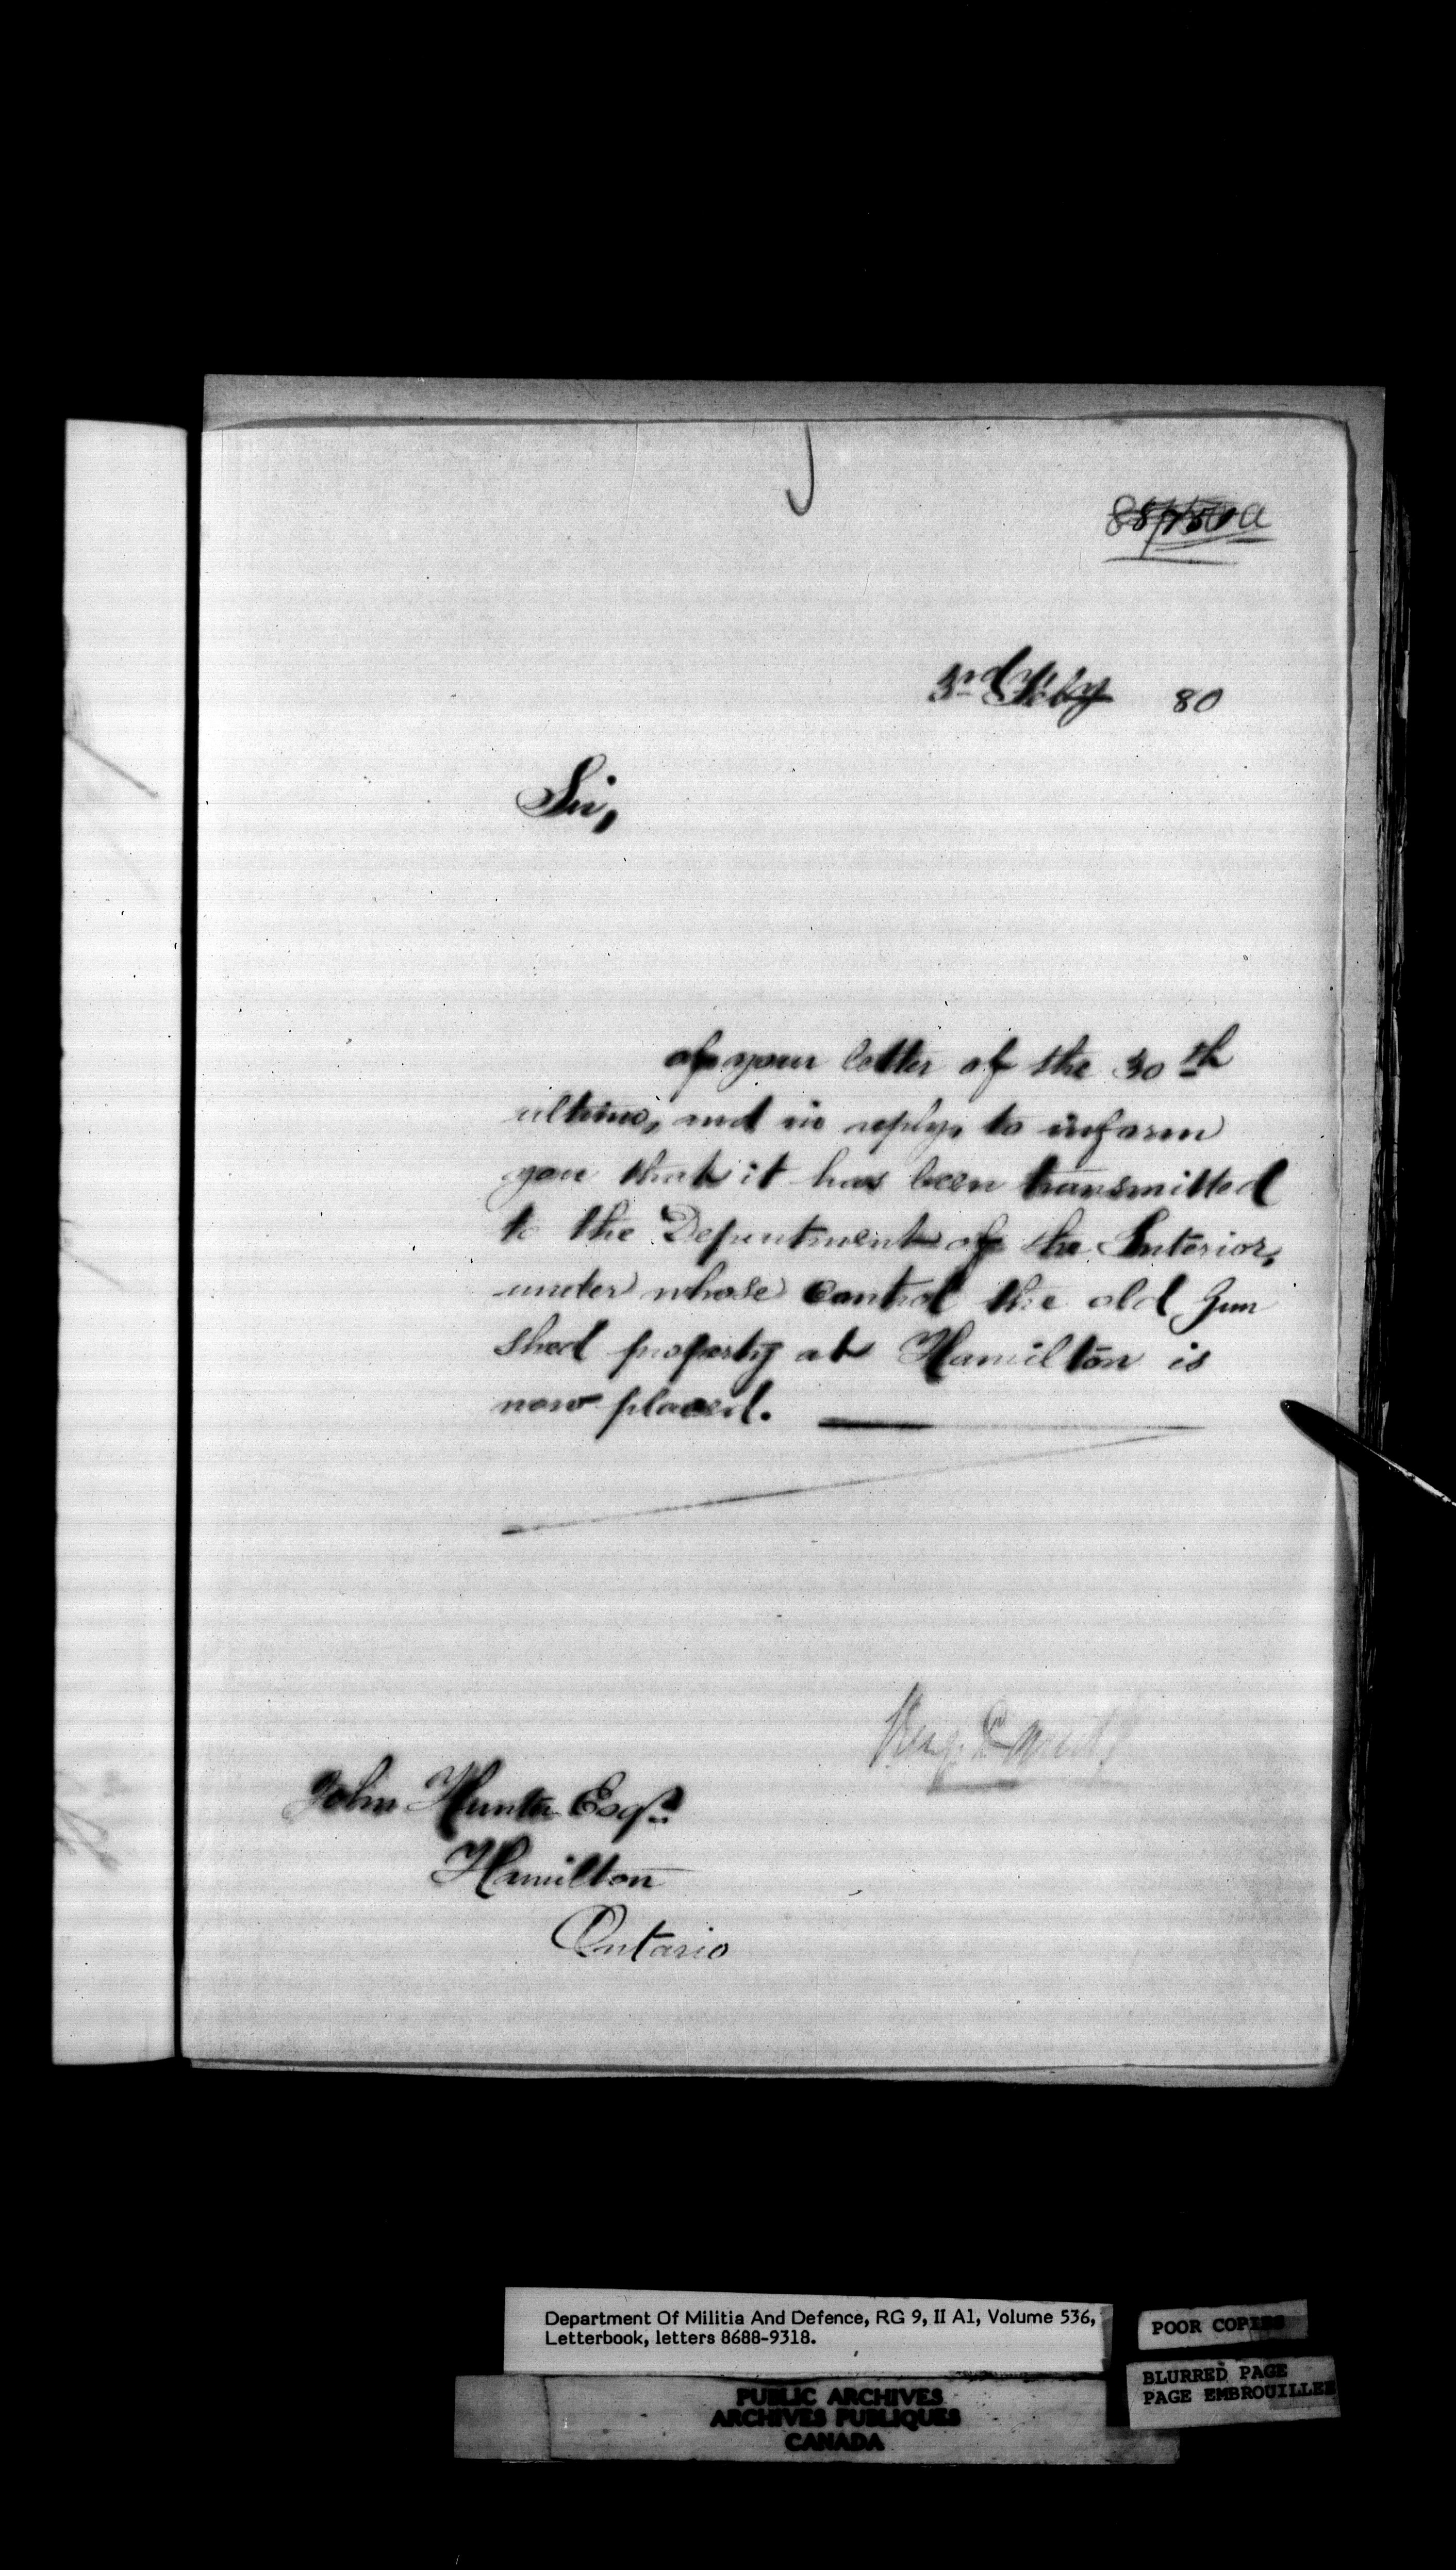 3rd Feby 80
Sir,
of your letter of the 30th
ultimo, and in reply, to inform
you that it has been transmitted
to the Department of the Interior,
under whose control the old Gun
shed property at Hamilton is
now placed.
John Hunter Esqr.
Hamilton
Ontario
Department Of Militia And Defence, RG 9, II A1, Volume 536,
Letterbook, letters 8688-9318.
POOR COPIES
BLURRED PAGE
PAGE EMBROUILLEE
PUBLIC ARCHIVES
ARCHIVES PUBLIQUES
CANADA